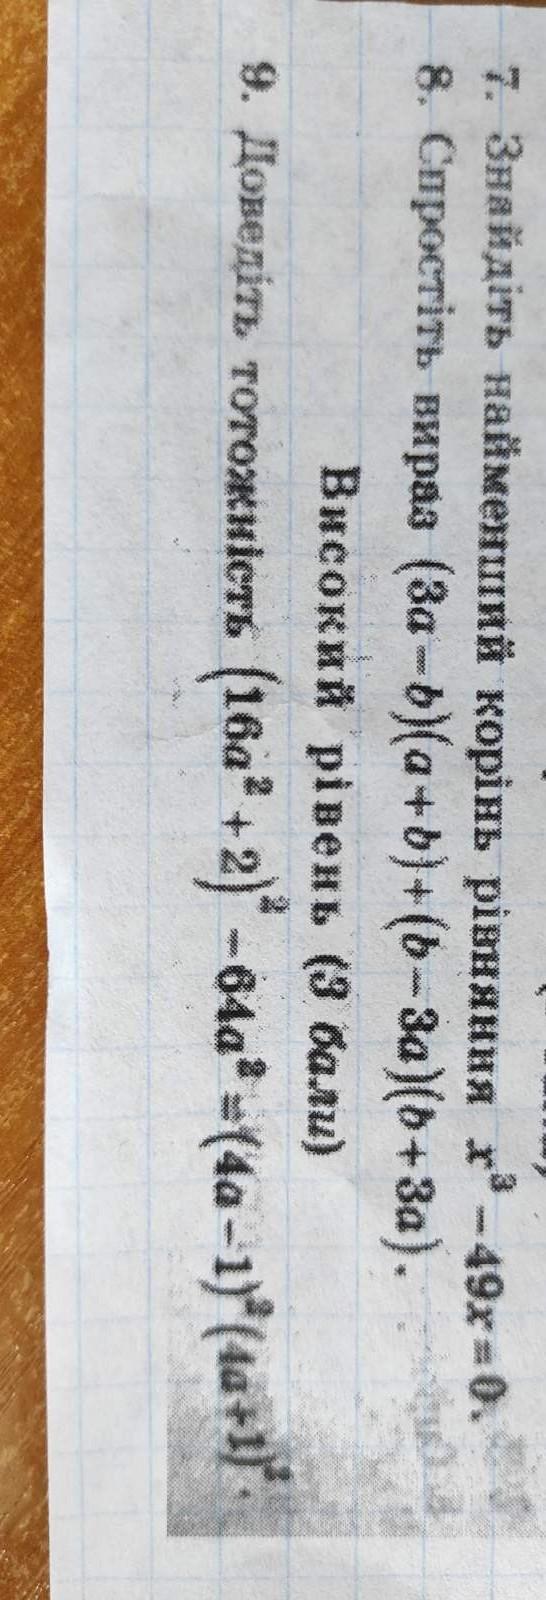 7. Знайдіть найменший корінь рівняння x³ − 49x = 0.
8. Спростіть вираз (3a − b)(a + b) + (b − 3a)(b + 3a).
Високий рівень (3 бали)
9. Доведіть тотожність (16a² + 2)² − 64a² = (4a − 1)²(4a + 1)².